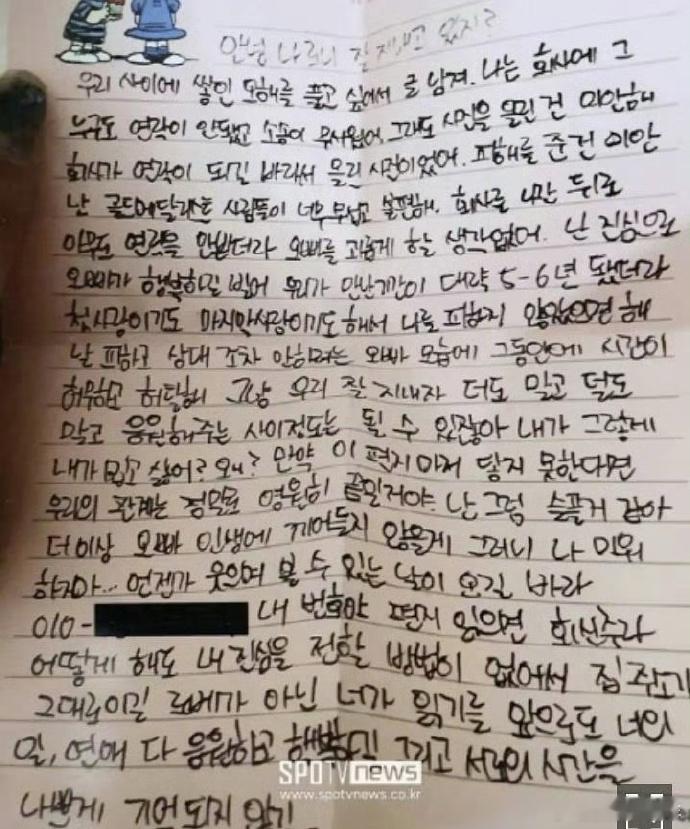 안녕 나 론이 잘 지내고 있지?
우리 사이에 쌓인 오해를 풀고 싶어서 글 남겨. 나는 회사에 그
누구도 연락이 안됐고 소송이 무서웠어. 그래도 사진을 올린 건 미안해
회사가 연락이 되길 바라서 올린 사진이었어. 피해를 준건 미안
난 골드메달리스트 사람들이 너무 무섭고 불편해. 회사를 나간 뒤로
아무도 연락을 안받더라 오빠를 괴롭게 할 생각없어. 난 진심으로
오빠가 행복하길 빌어 우리가 만난기간이 대략 5-6년 됐더라
첫사랑이기도 마지막사랑이기도 해서 나를 피하지 않았으면 해
날 피하고 상대 조차 안하려는 오빠 모습에 그동안에 시간이
허무하고 허탈해 그냥 우리 잘 지내자 더도 말고 덜도
말고 응원해주는 사이정도는 될 수 있잖아 내가 그렇게
내가 밉고 싫어? 왜? 만약 이 편지마저 닿지 못한다면
우리의 관계는 정말로 영원히 끝일거야. 난 그럼 슬플거 같아
더이상 오빠 인생에 끼어들지 않을게 그러니 나 미워
하지마... 언젠가 웃으며 볼 수 있는 날이 오길 바라
010- 내 번호야 편지 읽으면 회신주라
어떻게 해도 내 진심을 전할 방법이 없어서 집 주소가
그대로이길 로베가 아닌 너가 읽기를 앞으로도 너의
일, 연애 다 응원하고 행복하길 그리고 서로의 시간을
나쁘게 기억되지 않기
SPOTVnews
www.spotvnews.co.kr